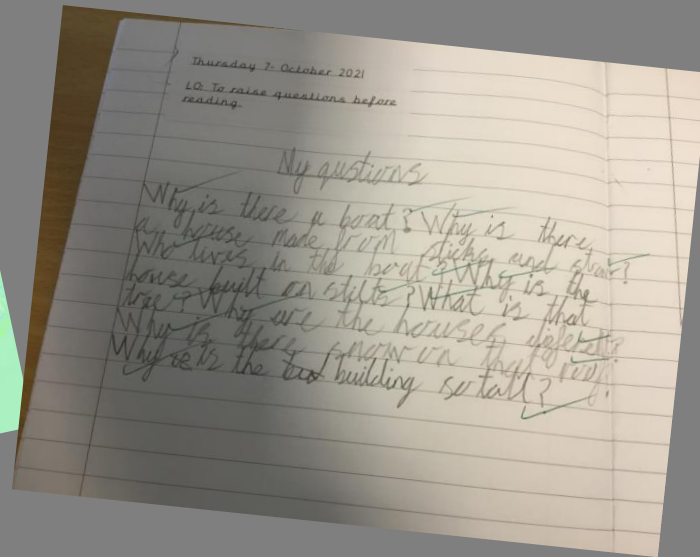 Thursday 7- October 2021
LO: To raise questions before
reading.
My qustions
Why is there a boat? Why is there
a house made from sticks and straw?
Who lives in the boat? Why is the
house built on stilts? What is that
trae? Why are the houses diferent?
Why is there snow on that roof?
Why is the building so tall?